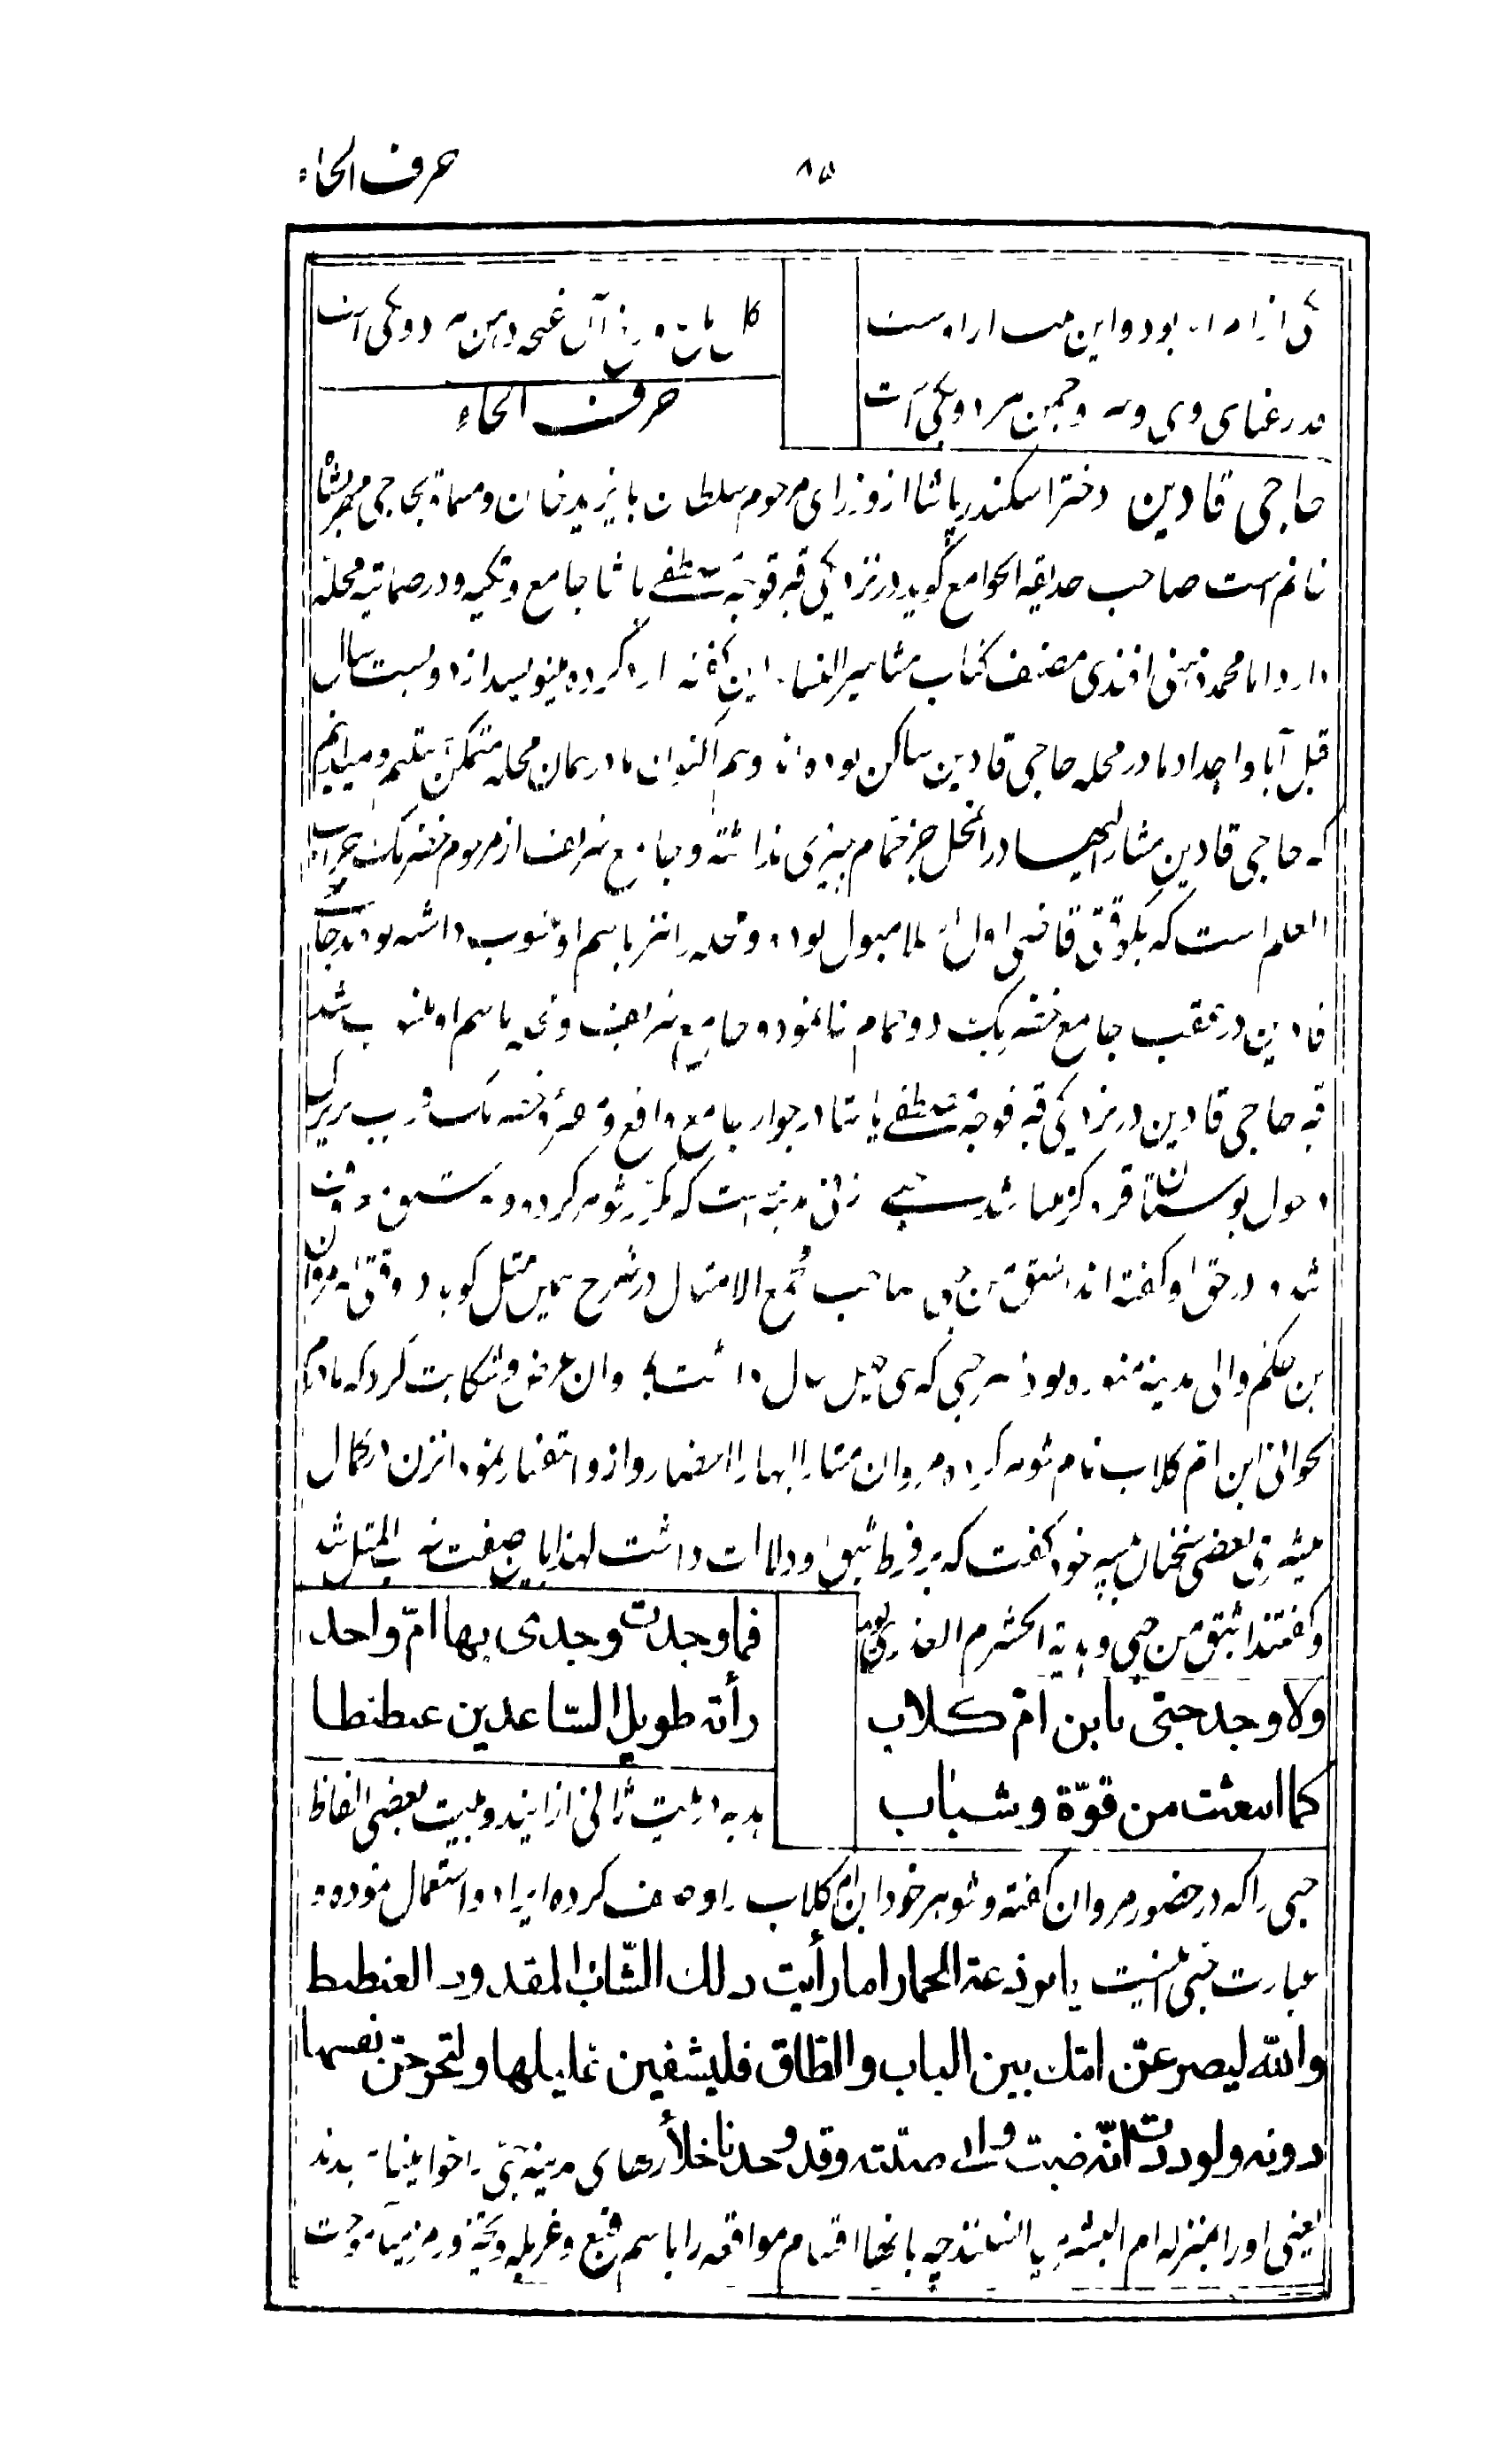 ۸۵
حرف الحاء
بود و این
است
کل
آن غنچه دهن هر دو یکی است
رعنای وی و
چمن هر دو یکی است
حرف الحاء
حاجی قادین دختر اسکندر پاشا از وزرای مرحوم سلطان بایزید خان و مسماة بحاجی
خانم است صاحب حدیقه الجوامع گوید در نزدیکی قبه قوجه مصطفی پاشا جامع و تکیه و در صماتیه محله
دارد اما محمد ذهنی افندی مصنف کتاب مشاهیر النساء این گفته را رد کرده مینویسد از دویست سال
قبل آبا و اجداد ما در محله حاجی قادین ساکن بوده‌اند و هم اکنون ما در همان محله متمکن هستیم و میدانیم
که حاجی قادین مشار الیها در آنمحل جز حمام چیزی نداشته و جامع شریف از مرحوم خضر بک
العلم است که یکوقتی قاضی اول اسلامبول بوده و محله را نیز باسم او منسوب داشته بودند حاجی
قادین در عقب جامع خضر بک دو حمام بنا نموده جامع شریف و محله باسم او منسوب شد
قبر حاجی قادین در نزدیکی قبه قوجه مصطفی پاشا در جوار جامع واقع و قبر خضر بک قریب
بوستان
حبی زنی مدنیه است که مکرر شوهر کرده و
شده در حق او گفته‌اند اشبق من حبی صاحب مجمع الامثال در شرح همین مثل گوید وقتی که مروان
بن حکم والی مدینه منوره بود پسر حبی که سی چهل سال داشت بمروان عرض و شکایت کرد که مادرم
بجوانی ابن ام کلاب نام شوهر کرده مروان مشار الیها را احضار و از او استفسار نمود آنزن در کمال
بیشرمی بعضی سخنان بپسر خود گفت که بر فرط شبق او دلالت داشت لهذا باین صفت ضرب المثل شد
و گفتند اشبق من حبی و هدبة بن الخشرم العذری گوید
فما وجدت وجدی بها امّ واحد
ولا وجد حبّی بابن امّ کلاب
رأته طویل السّاعدین عنطنطا
کما انبعثت من قوّة و شباب
هدبه در بیت ثانی از ایندو بیت بعضی الفاظ
حبی را که در حضور مروان گفته و شوهر خود ابن ام کلاب را وصف کرده ایراد و استعمال نموده و
عبارت حبی اینست یا برذعة الحمار اما رأیت ذلک الشّاب المقدود العنطنط
والله لیصرعنّ امّک بین الباب و الطّاق فلیشفین غلیلها و لتخرجنّ نفسها
دونه و لوددت انّه ضبّ و انی ضبّته و قد وجدنا خلأ زنهای مدینه حبی را حوا مینامیدند
یعنی او را بمنزله ام البشر میدانستند چه بآنها اقسام مواقعه را باسم قبع و غربله و نخیر و رهز میآموخت